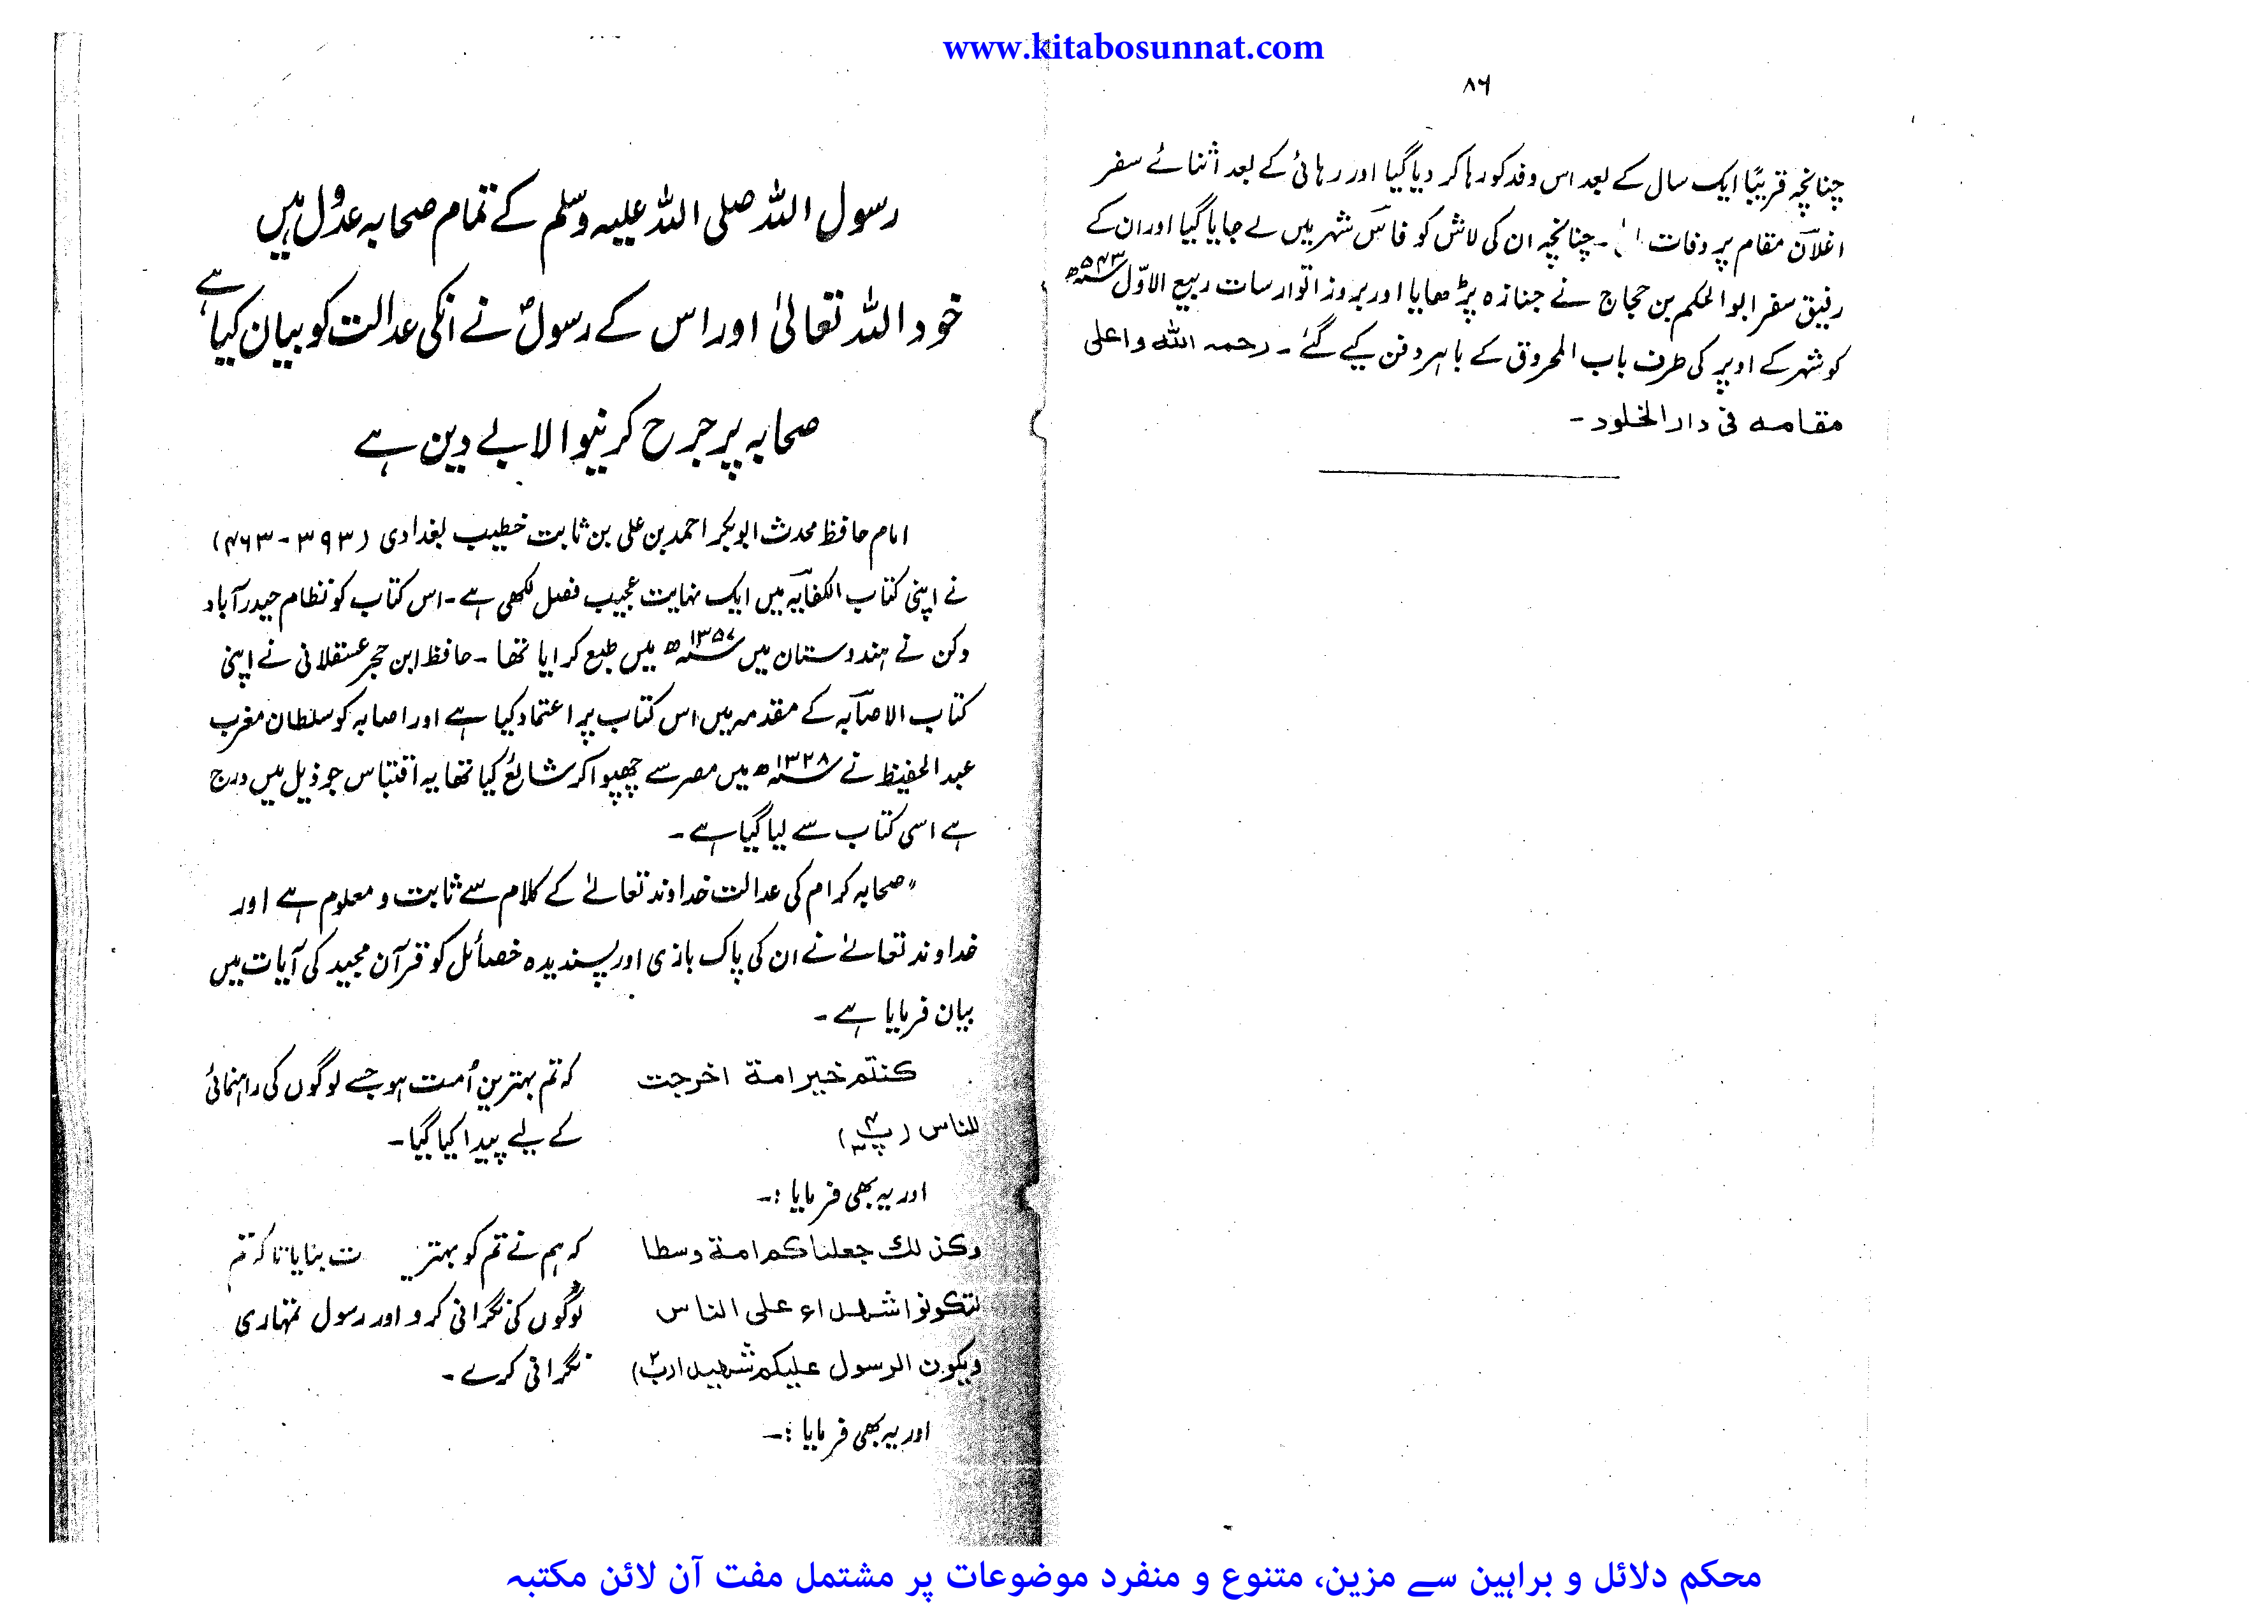 www.kitabosunnat.com
۸۶
چنانچہ قریبًا ایک سال کے بعد اس وفد کو رہا کر دیا گیا اور رہائی کے بعد اثنائے سفر
اغلان مقام پر وفات ۔ چنانچہ ان کی لاش کو فاس شہر میں لے جایا گیا اور ان کے
رفیق سفر ابو الحکم بن حجاج نے جنازہ پڑھایا اور بروز اتوار سات ربیع الاوّل ۵۴۳ھ
کو شہر کے اوپر کی طرف باب المحروق کے باہر دفن کیے گئے ۔ رحمہ اللہ واعلی
مقامہ فی دار الخلود ۔
رسول اللہ صلی اللہ علیہ وسلم کے تمام صحابہ عدول ہیں
خود اللہ تعالیٰ اور اس کے رسولؐ نے انکی عدالت کو بیان کیا ہے
صحابہ پر جرح کرنیوالا بے دین ہے
امام حافظ محدث ابوبکر احمد بن علی بن ثابت خطیب بغدادی (۳۹۳ - ۴۶۳)
نے اپنی کتاب الکفایہ میں ایک نہایت عجیب فصل لکھی ہے ۔ اس کتاب کو نظام حیدر آباد
دکن نے ہندوستان میں ۱۳۵۷ھ میں طبع کرایا تھا ۔ حافظ ابن حجر عسقلانی نے اپنی
کتاب الاصابہ کے مقدمہ میں اس کتاب پر اعتماد کیا ہے اور اصابہ کو سلطان مغرب
عبد الحفیظ نے ۱۳۲۸ھ میں مصر سے چھپوا کر شائع کیا تھا یہ اقتباس جو ذیل میں درج
ہے اسی کتاب سے لیا گیا ہے ۔
"صحابہ کرام کی عدالت خداوند تعالےٰ کے کلام سے ثابت و معلوم ہے اور
خداوند تعالےٰ نے ان کی پاک بازی اور پسندیدہ خصائل کو قرآن مجید کی آیات میں
بیان فرمایا ہے ۔
کنتم خیر امة اخرجت
للناس (پ۴)
کہ تم بہترین اُمت ہو جسے لوگوں کی راہنمائی
کے لیے پیدا کیا گیا ۔
اور یہ بھی فرمایا :۔
وکذلك جعلناکم امة وسطا
لتکونوا شهداء علی الناس
ویکون الرسول علیکم شهیدا (پ۲)
کہ ہم نے تم کو بہتر ت بنایا تا کہ تم
لوگوں کی نگرانی کرو اور رسول تمہاری
نگرانی کرے ۔
اور یہ بھی فرمایا :۔
محکم دلائل و براہین سے مزین، متنوع و منفرد موضوعات پر مشتمل مفت آن لائن مکتبہ